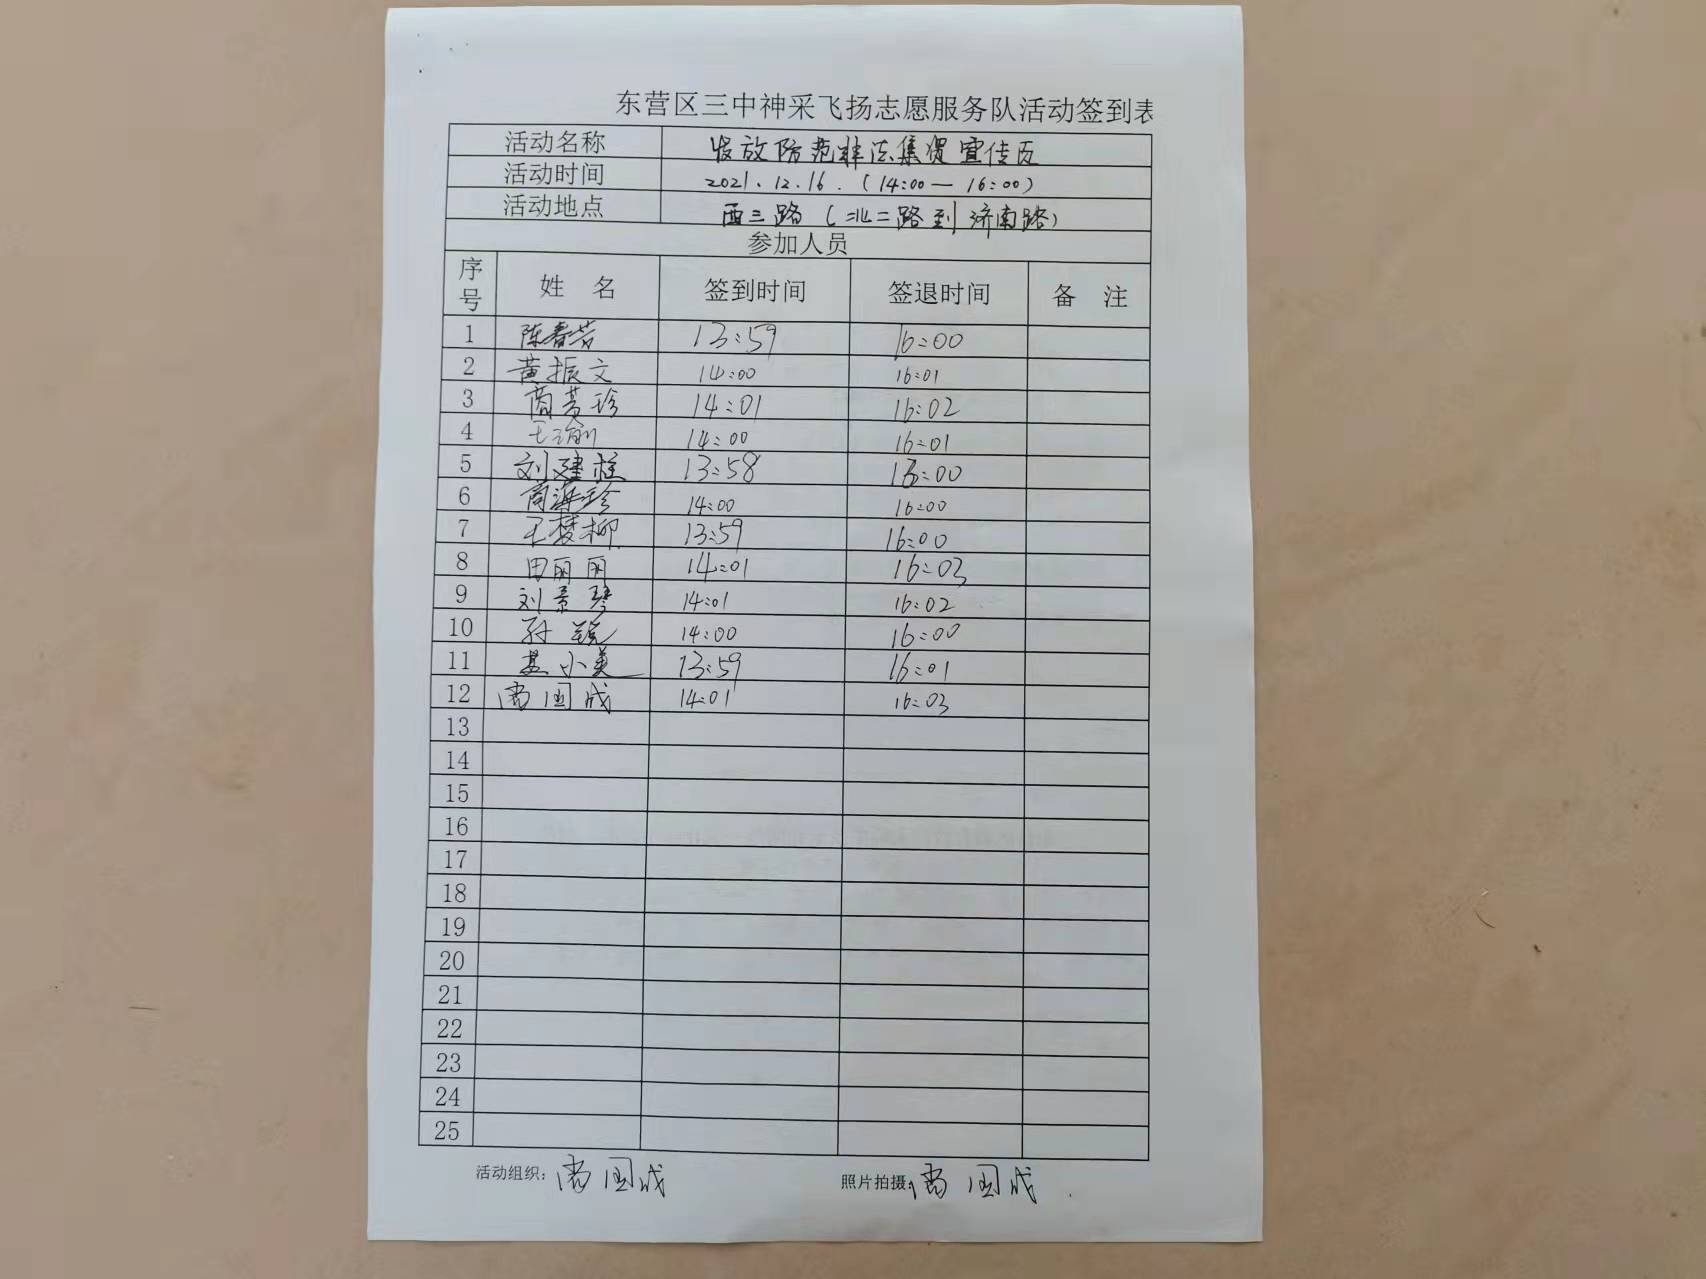 东营区三中神采飞扬志愿服务队活动签到表
活动名称 发放防范非法集资宣传页
活动时间 2021.12.16.(14:00—16:00)
活动地点 西三路(北二路到济南路)
参加人员
序号 姓 名 签到时间 签退时间 备 注
1 陈春芳 13:59 16:00
2 黄振文 14:00 16:01
3 商芳珍 14:01 16:02
4 王瑜 14:00 16:01
5 刘建柱 13:58 16:00
6 商海珍 14:00 16:00
7 王梦柳 13:59 16:00
8 田丽丽 14:01 16:03
9 刘景琴 14:01 16:02
10 孙锐 14:00 16:00
11 小美 13:59 16:01
12 国成 14:01 16:03
13
14
15
16
17
18
19
20
21
22
23
24
25
活动组织: 国成 照片拍摄: 国成